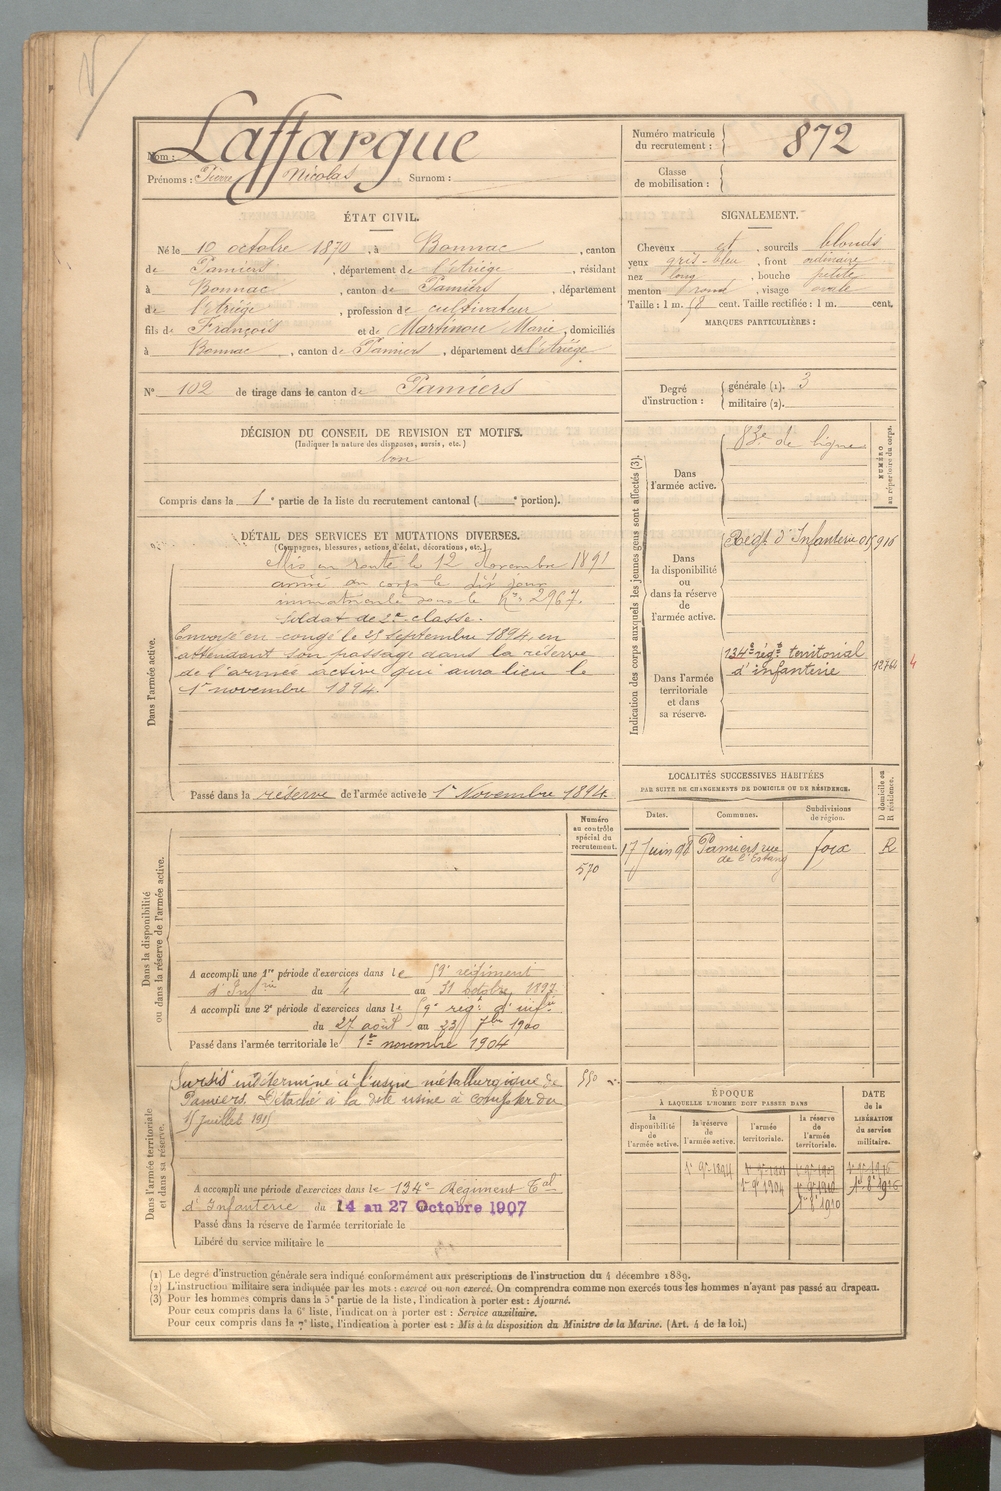 Nom : Laffargue
Prénoms : Pierre Nicolas Surnom :
Numéro matricule du recrutement : 872
Classe de mobilisation :
ÉTAT CIVIL.
Né le 10 octobre 1870, à Bonnac, canton
de Pamiers, département de l'Ariège, résidant
à Bonnac, canton de Pamiers, département
de l'Ariège, profession de cultivateur
fils de François et de Martinou Marie, domiciliés
à Bonnac, canton de Pamiers, département de l'Ariège
N° 102 de tirage dans le canton de Pamiers
SIGNALEMENT.
Cheveux et, sourcils blonds
yeux gris-bleu, front ordinaire
nez long, bouche petite
menton rond, visage ovale
Taille : 1 m. cent. Taille rectifiée : 1 m. cent.
MARQUES PARTICULIÈRES :
Degré d'instruction : générale (1). 3
militaire (2).
DÉCISION DU CONSEIL DE REVISION ET MOTIFS.
(Indiquer la nature des dispenses, sursis, etc.)
bon
Compris dans la 1e partie de la liste du recrutement cantonal ( e portion).
DÉTAIL DES SERVICES ET MUTATIONS DIVERSES.
(Campagnes, blessures, actions d'éclat, décorations, etc.)
Dans l'armée active.
Mis en route le 12 Novembre 1891
arrivé au corps le dit jour
immatriculé sous le N° 2967.
Soldat de 2e classe.
Envoyé en congé le 25 septembre 1894, en
attendant son passage dans la réserve
de l'armée active qui aura lieu le
1er novembre 1894.
Passé dans la réserve de l'armée active le 1er Novembre 1894.
Indication des corps auxquels les jeunes gens sont affectés (3).
NUMÉRO au répertoire du corps.
Dans l'armée active.
83e de ligne
Dans la disponibilité ou dans la réserve de l'armée active.
Régt d'Infanterie 015916
Dans l'armée territoriale et dans sa réserve.
134e régt territorial
d'infanterie
12764 4
LOCALITÉS SUCCESSIVES HABITÉES
PAR SUITE DE CHANGEMENTS DE DOMICILE OU DE RÉSIDENCE.
Dates. Communes. Subdivisions de région. D domicile ou R résidence.
17 Juin 98 Pamiers rue de l'Estang foix R
Dans la disponibilité ou dans la réserve de l'armée active.
Numéro au contrôle spécial du recrutement.
570
A accompli une 1re période d'exercices dans le 59e régiment
d'Infrie du 4 au 31 octobre 1897
A accompli une 2e période d'exercices dans le 59e régt d'infie
du 27 août au 23 7bre 1900
Passé dans l'armée territoriale le 1er novembre 1904
Dans l'armée territoriale et dans sa réserve.
Sursis indéterminé à l'usine métallurgique de
Pamiers. Détaché à la dite usine à compter du
15 Juillet 1915
550
A accompli une période d'exercices dans le 134e Régiment Tal
d'Infanterie du 14 au 27 Octobre 1907
Passé dans la réserve de l'armée territoriale le
Libéré du service militaire le
ÉPOQUE
À LAQUELLE L'HOMME DOIT PASSER DANS
la disponibilité de l'armée active. la réserve de l'armée active. l'armée territoriale. la réserve de l'armée territoriale.
DATE de la LIBÉRATION du service militaire.
1er 9bre 1894
1er 9bre 1904
(1) Le degré d'instruction générale sera indiqué conformément aux prescriptions de l'instruction du 4 décembre 1889.
(2) L'instruction militaire sera indiquée par les mots : exercé ou non exercé. On comprendra comme non exercés tous les hommes n'ayant pas passé au drapeau.
(3) Pour les hommes compris dans la 5e partie de la liste, l'indication à porter est : Ajourné.
Pour ceux compris dans la 6e liste, l'indication à porter est : Service auxiliaire.
Pour ceux compris dans la 7e liste, l'indication à porter est : Mis à la disposition du Ministre de la Marine. (Art. 4 de la loi.)